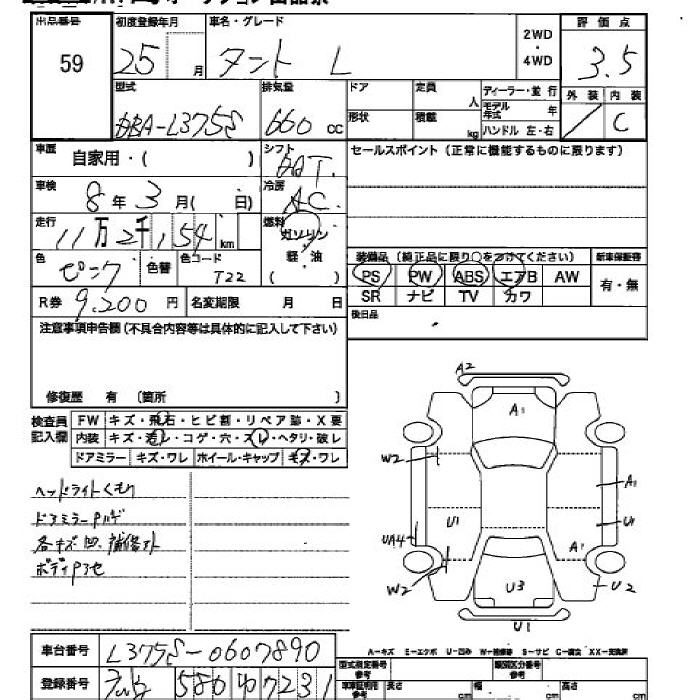 出品番号 初度登録年月 車名・グレード 2WD・4WD 評価点
59 25 月 タント L 3.5
型式 排気量 ドア 定員 人 ディーラー・並行 外装 内装
DBA-L375S 660 cc 形状 積載 kg モデル年式 年 C
ハンドル 左・右
車歴 自家用・( ) シフト セールスポイント(正常に機能するものに限ります)
車検 8年3月( 日) 冷房 AC
走行 11万2千154km 燃料 ガソリン・軽油 ( )
色 ピンク 色替 色コード T22
装備品(純正品に限り○をつけてください) 新車保証書
PS PW ABS エアB AW 有・無
SR ナビ TV カワ
R券 9,200円 名変期限 月 日 後日品
注意事項申告欄(不具合内容等は具体的に記入して下さい)
修復歴 有 〔箇所 〕
検査員記入欄 FW キズ・飛石・ヒビ割・リペア跡・X要
内装 キズ・汚レ・コゲ・穴・スレ・ヘタリ・破レ
ドアミラー キズ・ワレ ホイール・キャップ キズ・ワレ
ヘッドライトくもり
ドアミラーPハゲ
各キズ凹、補修
ボディP
A2
A1
W2
A1
U1 U1
UA4 A1
W2 U3 U2
U1
A-キズ E-エクボ U-凹み W-補修跡 S-サビ C-腐食 XX-交換済
車台番号 L375S-0607890
型式指定番号 参考 類別区分番号 参考
登録番号 580 7231
車車証明用 参考 長さ cm 幅 cm 高さ cm